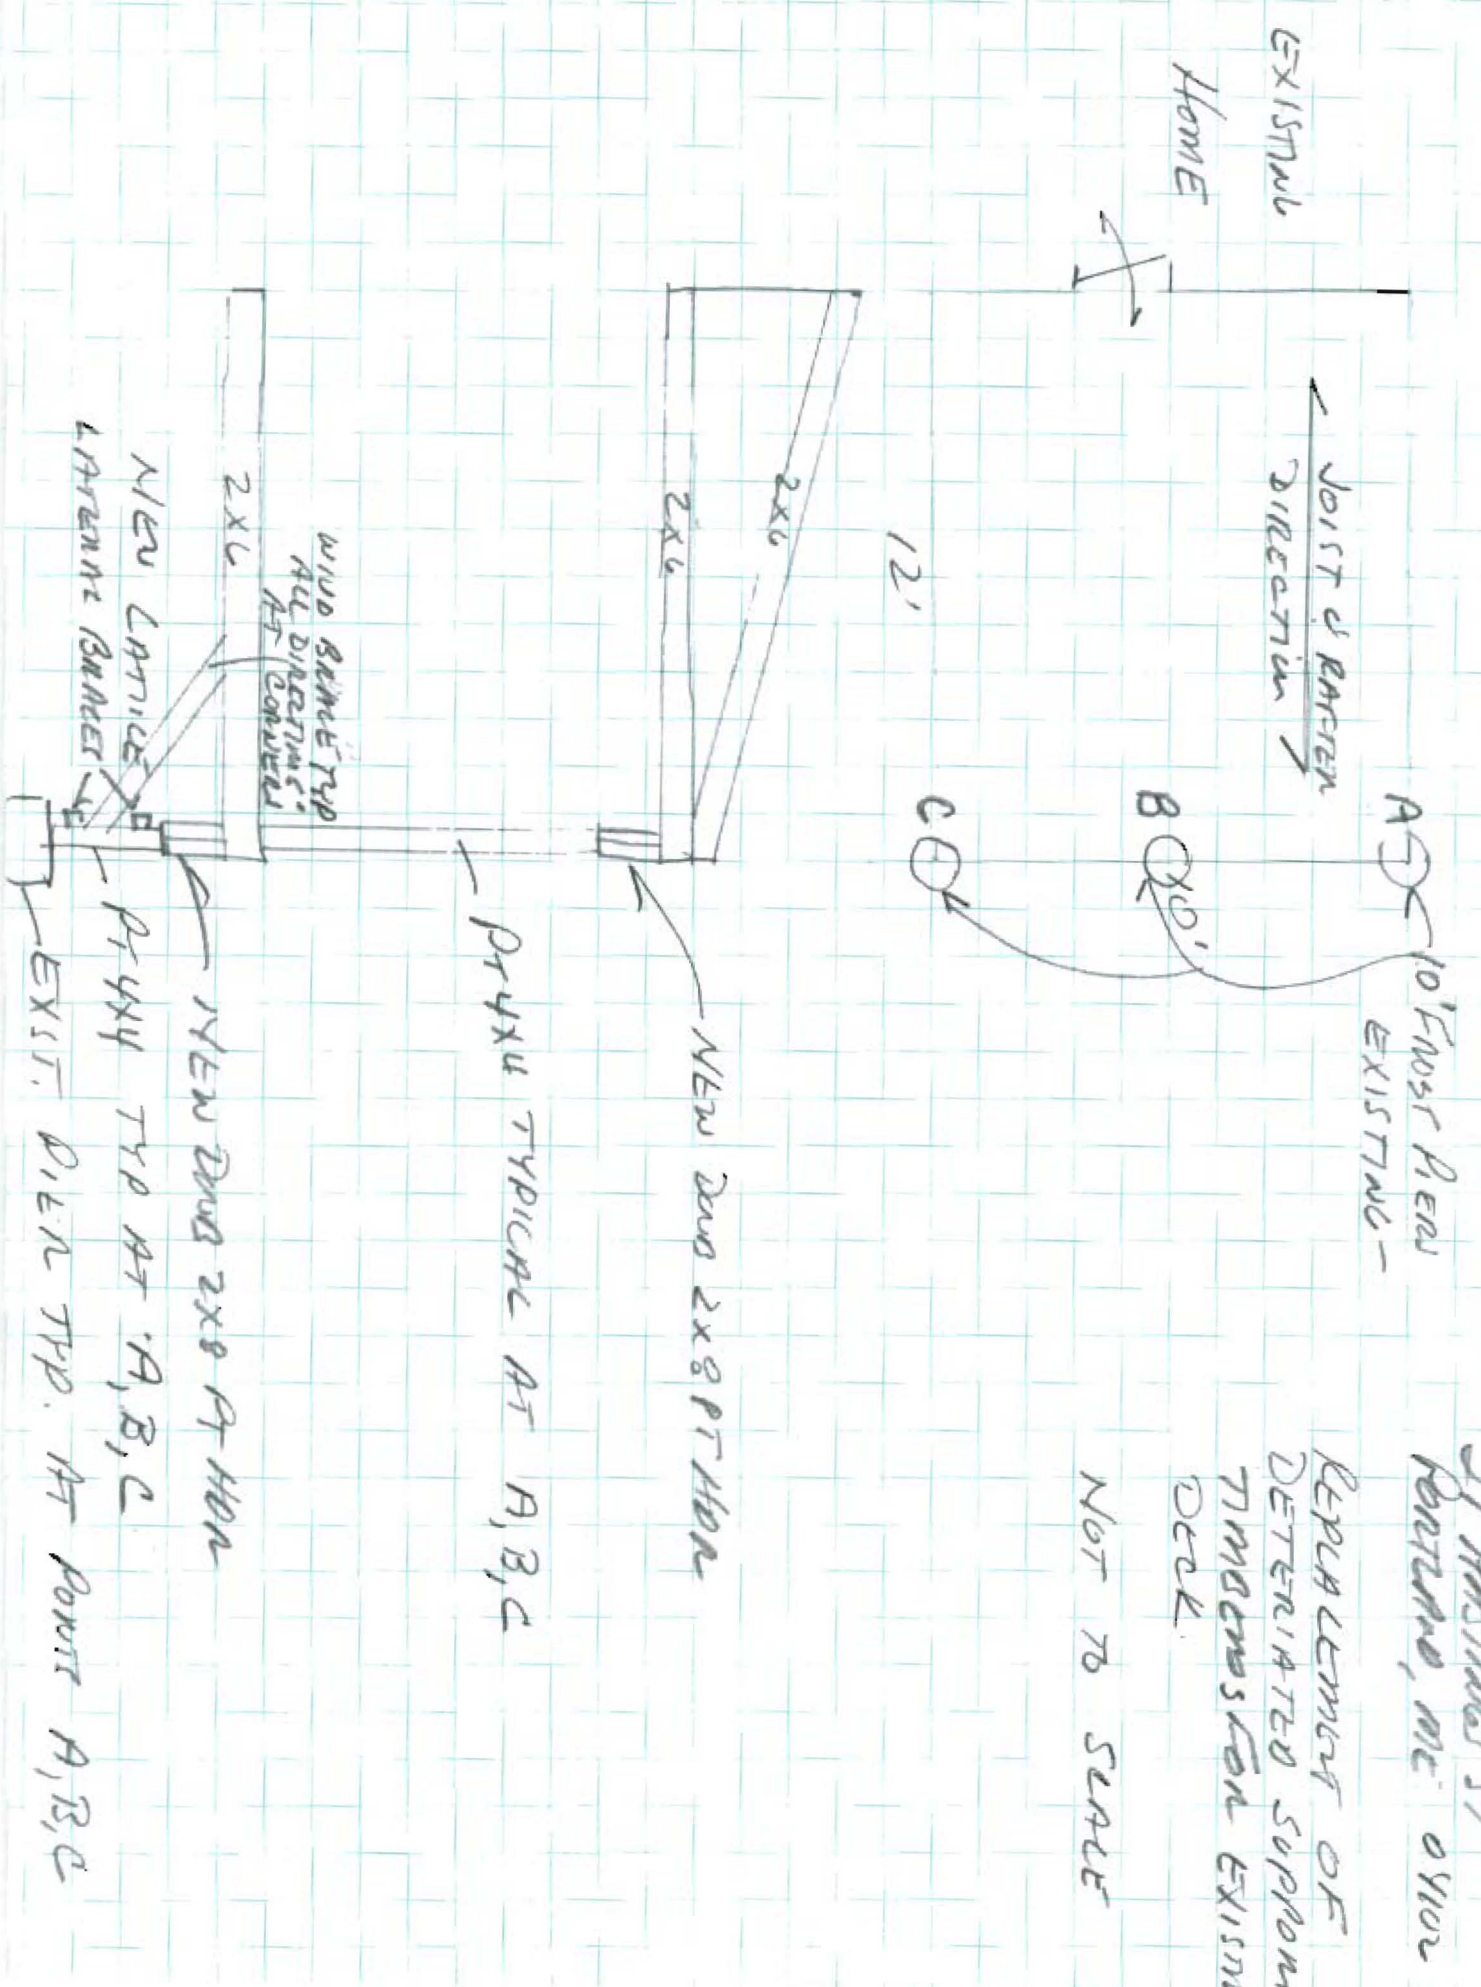 PORTLAND, ME 04102
REPLACEMENT OF
DETERIATED SUPPORT
TIMBERS FOR EXIST
DECK.
NOT TO SCALE
EXISTING
HOME
JOIST & RAFTER
DIRECTION
A
10" FROST PIERS
EXISTING -
B
10'
C
12'
2x6
2x6
NEW DOUB 2x8 PT HDR
PT 4x4 TYPICAL AT A, B, C
WIND BRACE TYP
ALL DIRECTIONS
AT CORNERS
2x6
NEW LATTICE
LATERAL BRACES
NEW DOUB 2x8 PT HDR
PT 4x4 TYP AT A, B, C
EXIST. PIER TYP. AT POINTS A, B, C